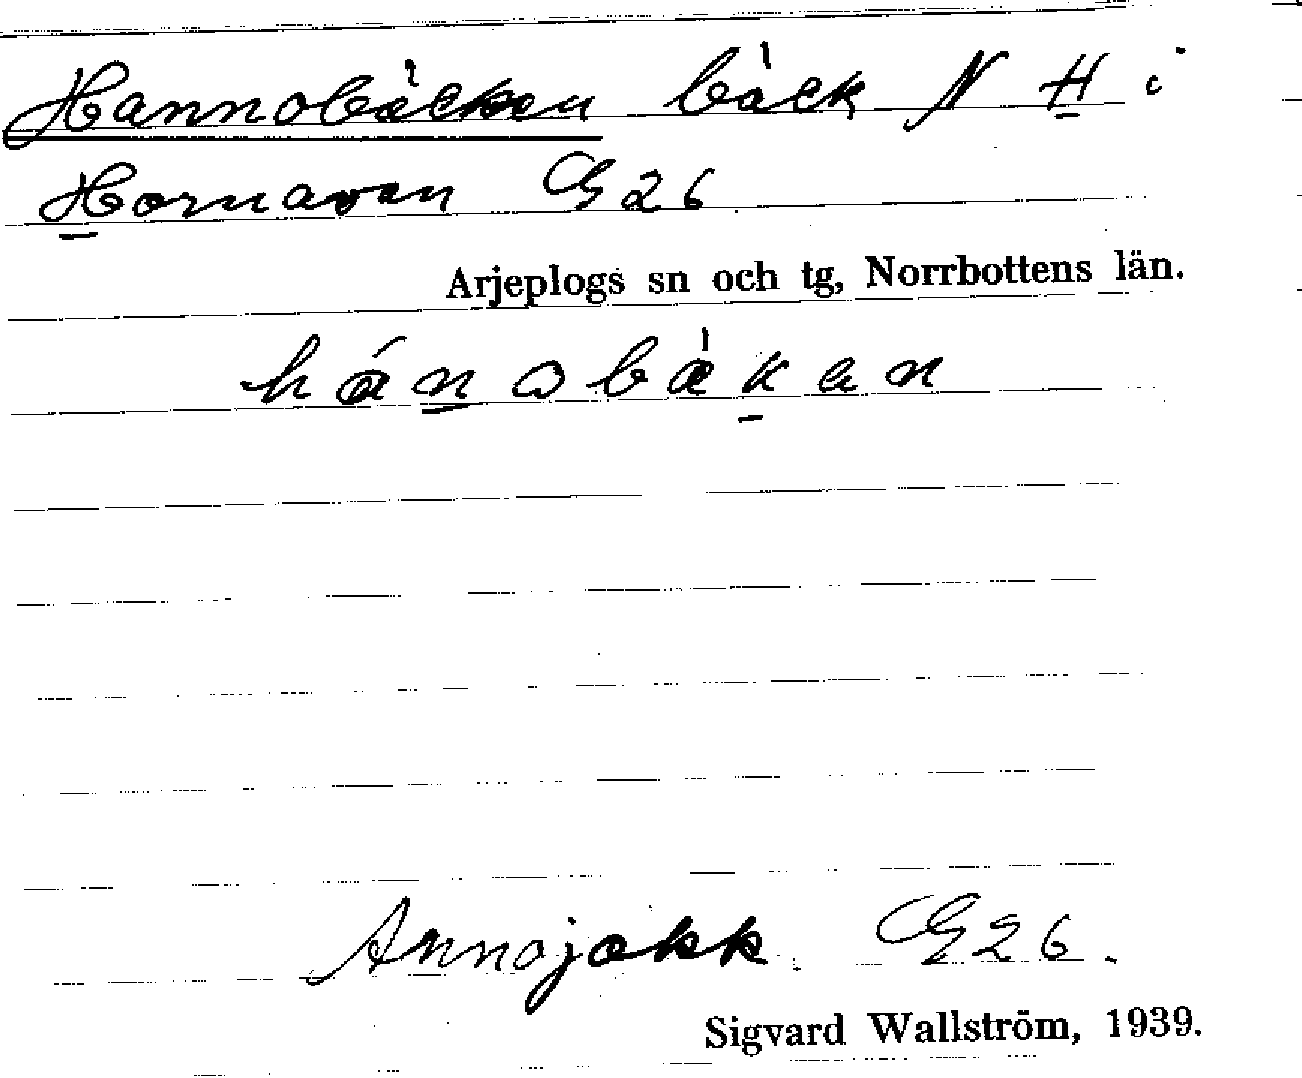 Hannobäcken bäck N H i
Hornavan G26
Arjeplogs sn och tg, Norrbottens län.
hánobäkan
Annojokk. G26.
Sigvard Wallström, 1939.